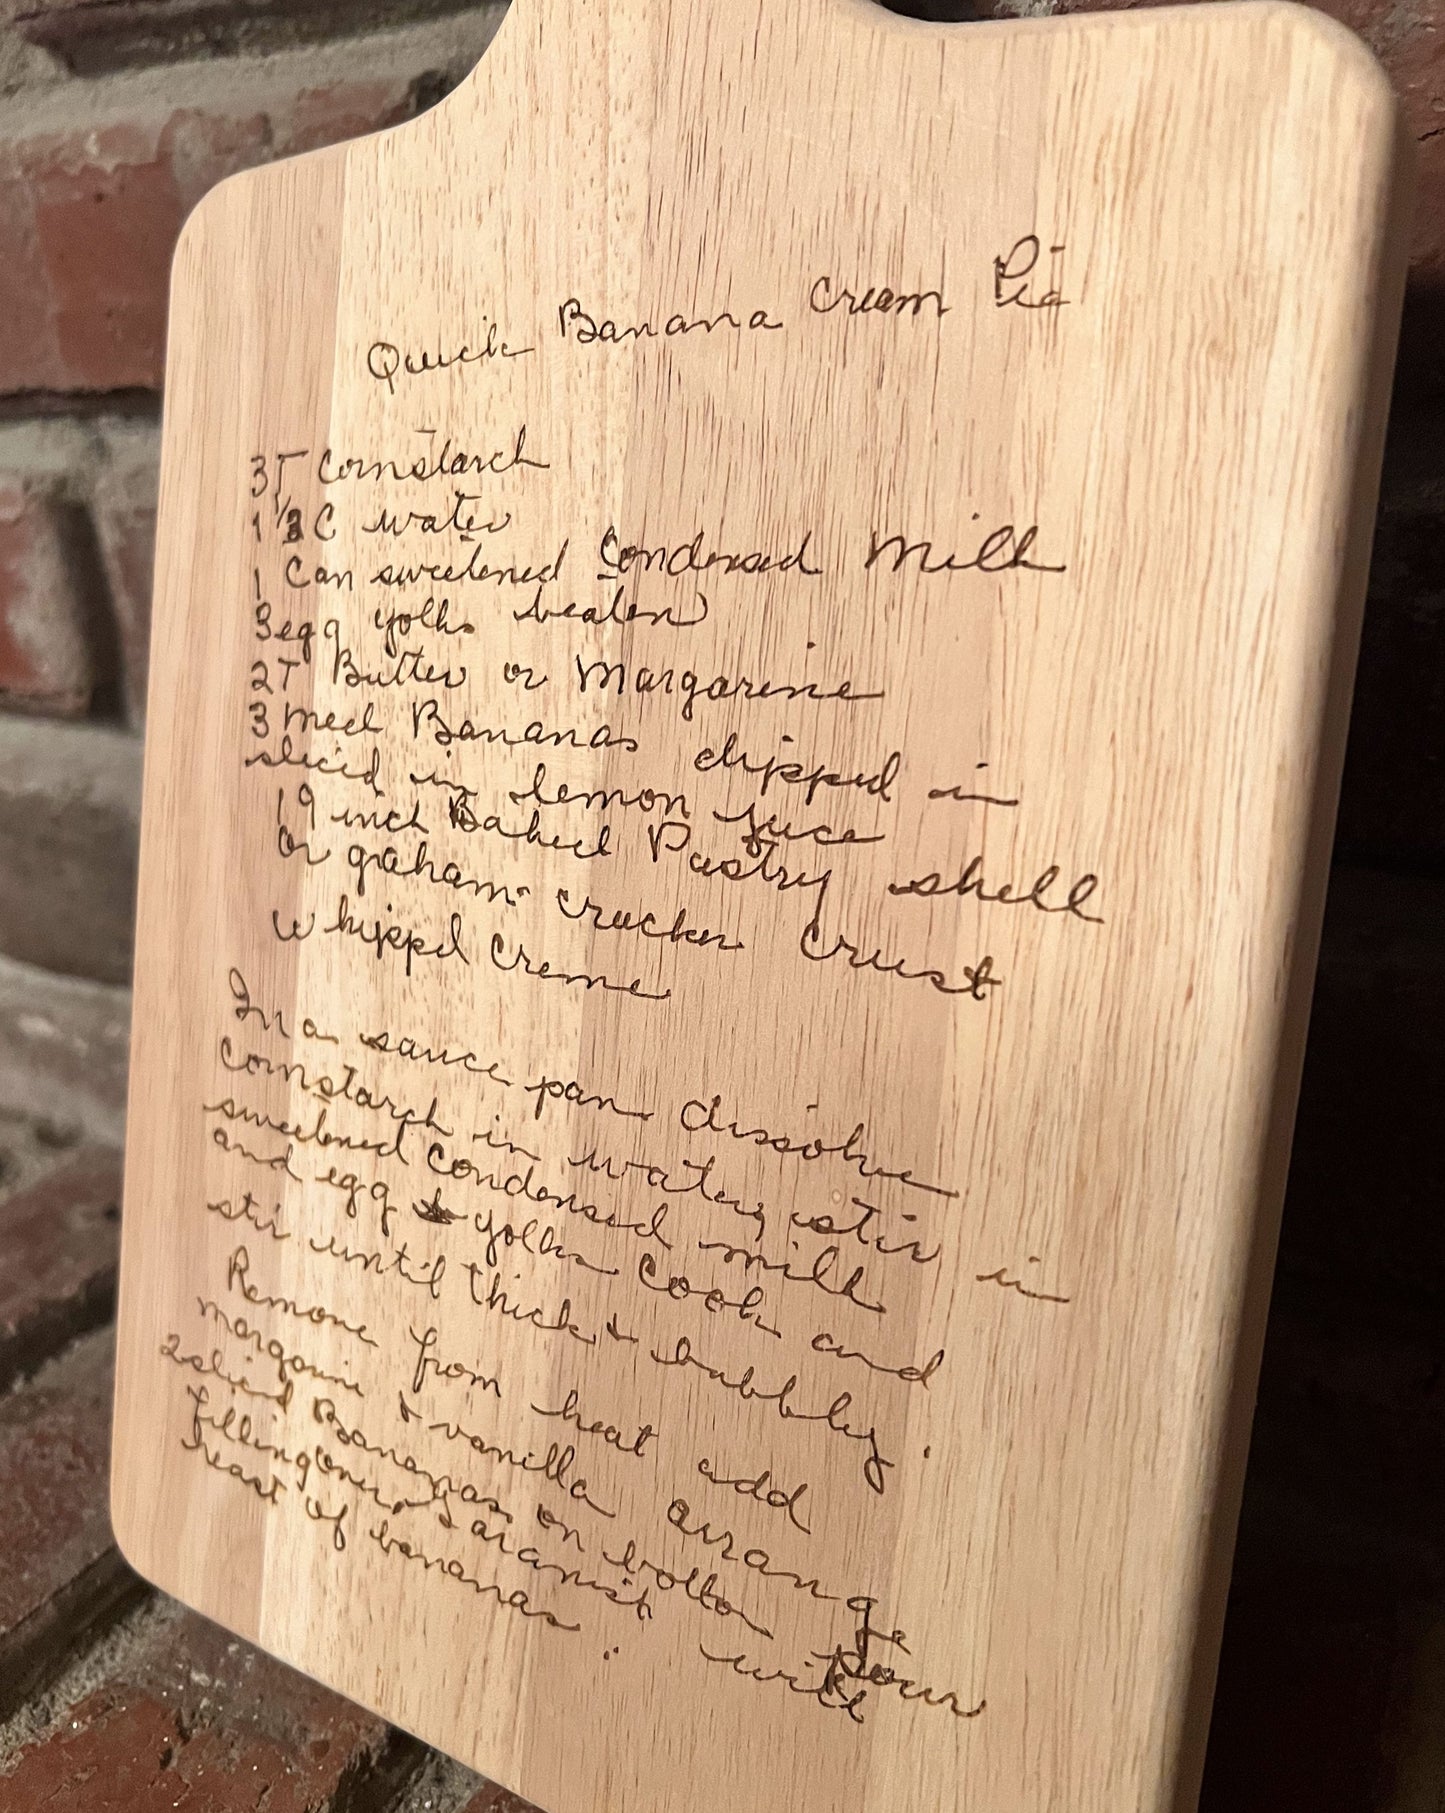 Quick Banana Cream Pie
3T Cornstarch
1 C water
1 Can sweetened Condensed Milk
3 egg yolks beaten
2T Butter or Margarine
3 med Bananas dipped in
sliced in lemon juce
1 9 inch Baked Pastry shell
or graham cracker crust
Whipped Creme
In a sauce pan dissolve
Cornstarch in water, stir in
sweetened condensed milk
and egg yolks Cook and
stir until thick & bubbly.
Remove from heat add
margarine & vanilla arrange
2 sliced Bananas on bottom pour
filling over, with
rest of bananas.